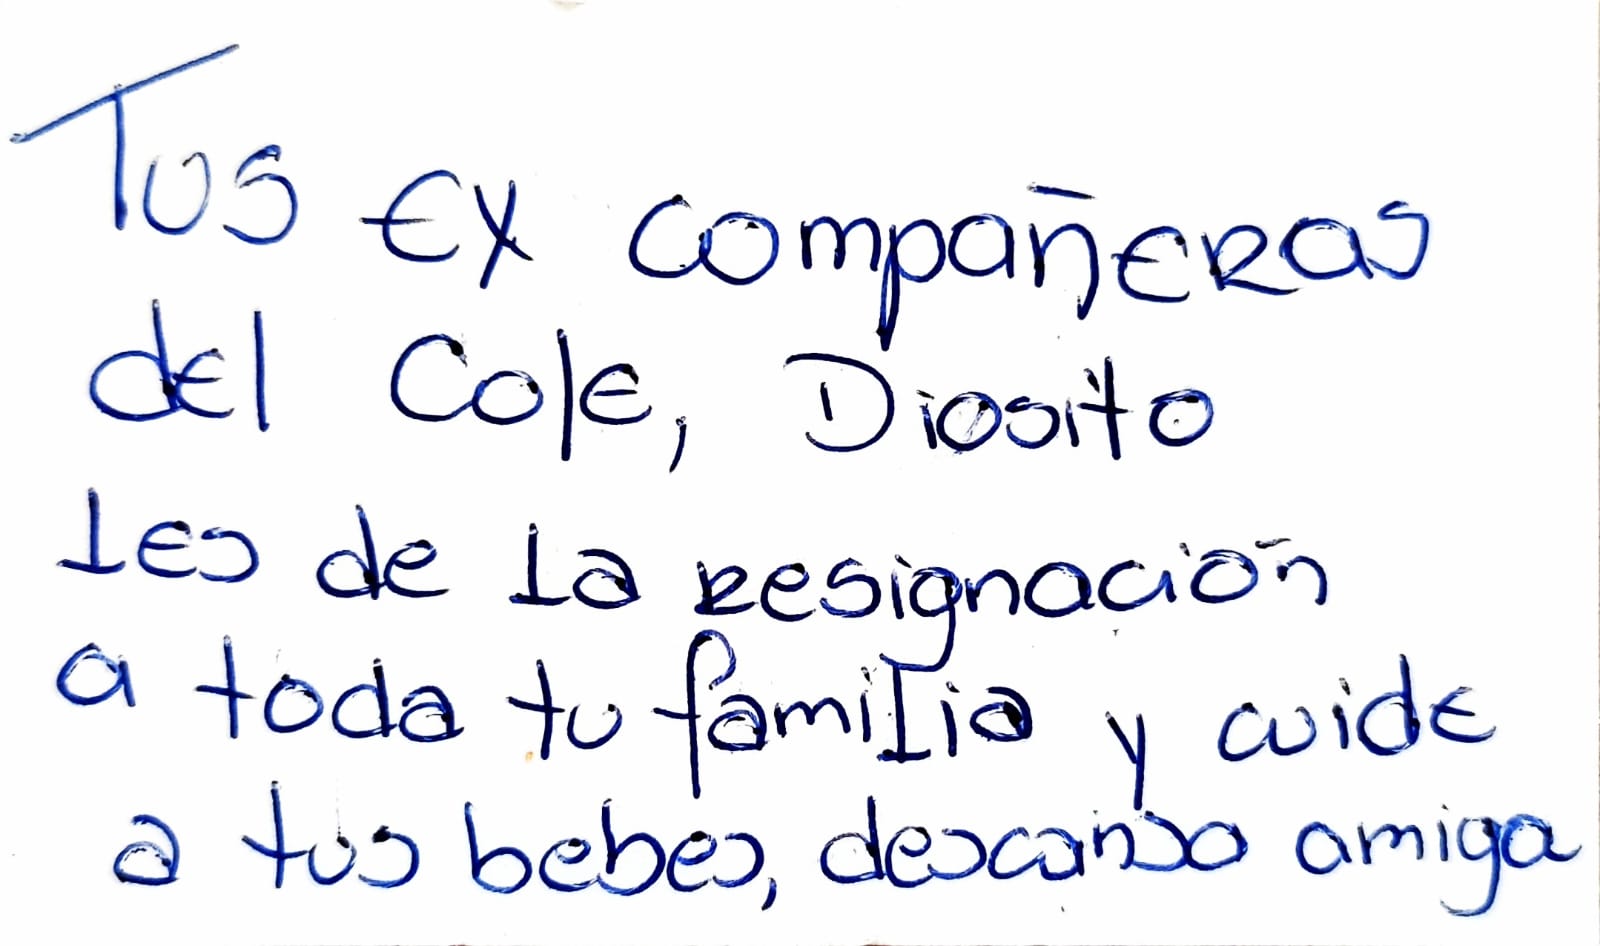 Tus ex compañeras
del Cole, Diosito
les de la resignación
a toda tu familia y cuide
a tus bebes, descansa amiga